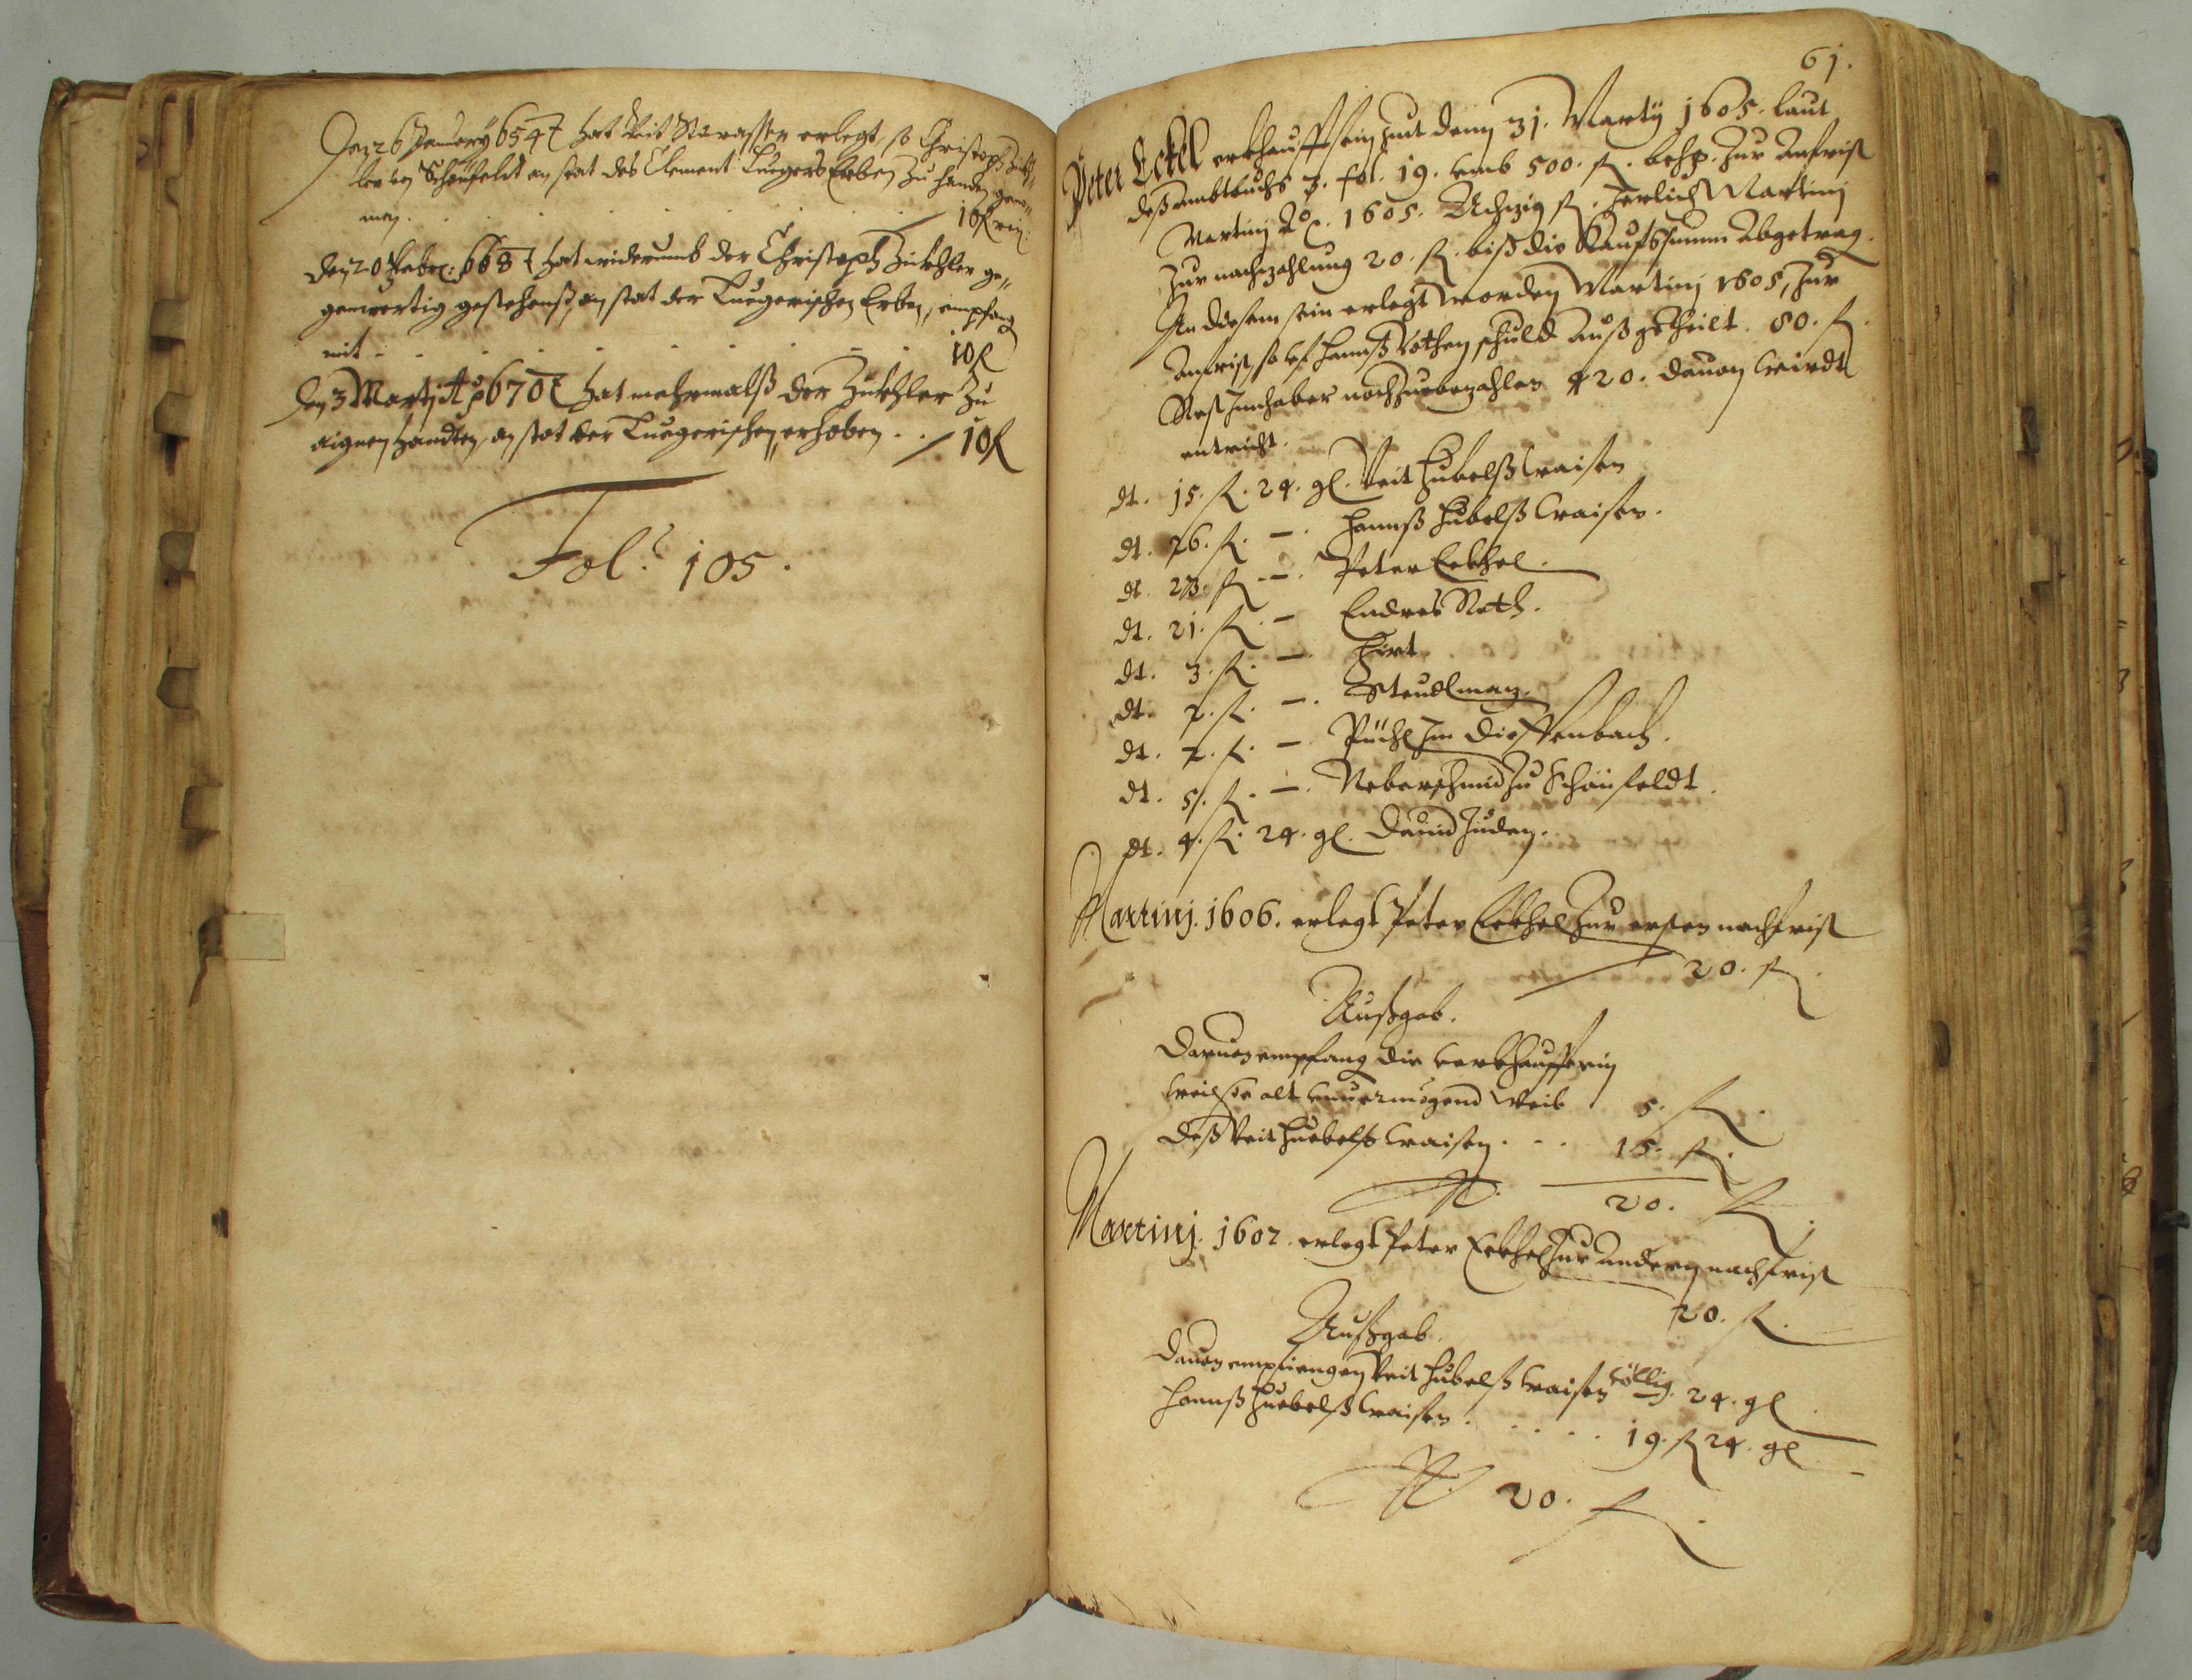 Den 26 January 654 hat Veit Strasser erlegt, so Christoph Zickh-
ler von Schönfeldt an stat des Clement Luegers Erben zu handen genom-
men . . . 10 fl rein.
Den 20 Febr: 668 hat widerumb der Christoph Zickhler ge-
genwertig gestehenß, an stat der Luegerischen Erben, empfang
mit . . . . . . 10 fl
Den 3 Martj Aō 670 hat mehrmalß der Zickhler zu
aignen handten, an stat der Luegerischen, erhoben . . 10 fl
Fol: 105.
61.
Peter Eckel erkhaufft sein huet denn 31. Martij 1605. laut
deß ambtbuchs 3. fol. 19. vmb 500. fl. behz. zur anfrist
Martinj Aō. 1605. Achzig fl. Jerlich Martinj
Zur nachzahlung 20. fl. biß die Kaufsumm Abgetrag.
An disem sein erlegt worden Martinj 1605, zur
anfrist, so vf Hannß Rothen schuld außgetheilt. 80. fl.
Rest Innhaber noch zuebezahlen 420. dauon wirdt
entricht.
dt. 15. fl. 24. gl. Veit Hubelß waisen
dt. 76. fl. — Hannß Hubelß waisen.
dt. 23. fl. — Peter Eckhel.
dt. 21. fl. — Endres Roth.
dt. 3. fl. — Hirt.
dt. 7. fl. — Steudlman.
dt. 7. fl. — Püchl Im Dieffenbach.
dt. 51. fl. — Neberschmid zu Schönfeldt.
dt. 4. fl. 24. gl. Dauid Juden.
Martinj. 1606. erlegt Peter Eckhel zur ersten nachfrist
20. fl.
Außgab.
Daruon empfang die verkhaufferin
weil sie alt vnuermögend Weib 5. fl.
Deß Veit Huebelß waisen . . . 15. fl.
20. fl.
Martinj. 1607. erlegt Peter Eckhel zur andern nachfrist
20. fl.
Außgab.
Dauon empfiengen Veit Hubelß waisen völlig. 24. gl
Hannß Huebelß waisen . . . . 19. fl 24. gl
20. fl.